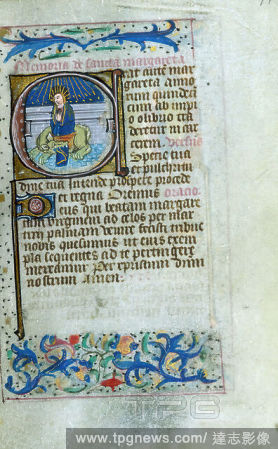 Memoria de sancta margareta
Erat autē mar
gareta anno
rum quinde
cim cum ab impi
o olibro tra
deretur in car
cerem. versus
Specie tua
et pulchritu
dine tua Intende prospere procede
et regna. Oremus oracio
Deus qui beatam margar
etam virginem ad celos per mar
tirii palmam venire fecisti tribue
nobis quesumus ut eius exem
pla sequentes ad te pertingere
mereamur Per xpristum dnm
nostrum Amen.
TPG
www.tpgnews.com/ 達志影像